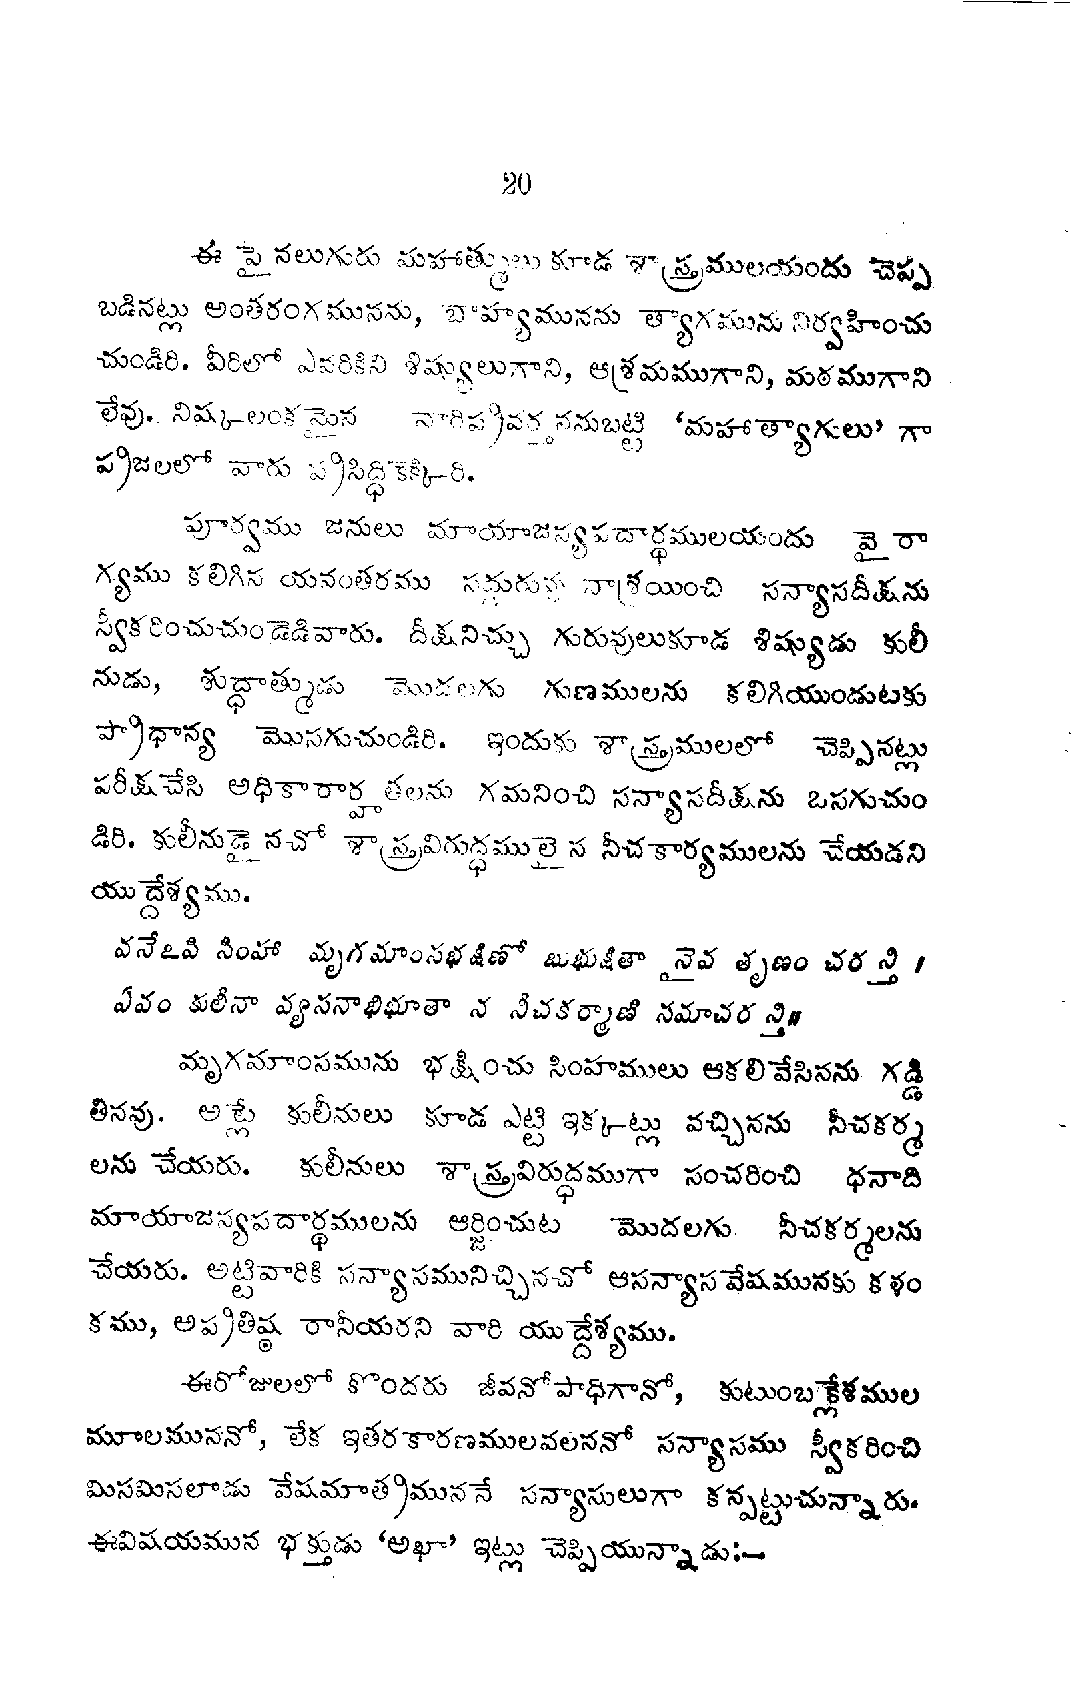 20
ఈ పై నలుగురు మహాత్ములు కూడ శాస్త్రములయందు చెప్ప
బడినట్లు అంతరంగమునను, బాహ్యమునను త్యాగమును నిర్వహించు
చుండిరి. వీరిలో ఎవరికిని శిష్యులుగాని, ఆశ్రమముగాని, మఠముగాని
లేవు. నిష్కలంకమైన వారిప్రవర్తననుబట్టి ‘మహాత్యాగులు’ గా
ప్రజలలో వారు ప్రసిద్ధికెక్కిరి.
పూర్వము జనులు మాయాజన్యపదార్థములయందు వైరా
గ్యము కలిగిన యనంతరము సద్గురువు నాశ్రయించి సన్యాసదీక్షను
స్వీకరించుచుండెడివారు. దీక్షనిచ్చు గురువులుకూడ శిష్యుడు కులీ
నుడు, శుద్ధాత్ముడు మొదలగు గుణములను కలిగియుండుటకు
ప్రాధాన్య మొసగుచుండిరి. ఇందుకు శాస్త్రములలో చెప్పినట్లు
పరీక్షచేసి అధికారార్హతలను గమనించి సన్యాసదీక్షను ఒసగుచుం
డిరి. కులీనుడైనచో శాస్త్రవిరుద్ధములైన నీచకార్యములను చేయడని
యుద్దేశ్యము.
వనేఽపి సింహా మృగమాంసభక్షిణో బుభుక్షితా నైవ తృణం చరన్తి ।
ఏవం కులీనా వ్యసనాభిభూతా న నీచకర్మాణి సమాచరన్తి॥
మృగమాంసమును భక్షించు సింహములు ఆకలివేసినను గడ్డి
తినవు. అట్లే కులీనులు కూడ ఎట్టి ఇక్కట్లు వచ్చినను నీచకర్మ
లను చేయరు. కులీనులు శాస్త్రవిరుద్ధముగా సంచరించి ధనాది
మాయాజన్యపదార్థములను ఆర్జించుట మొదలగు నీచకర్మలను
చేయరు. అట్టివారికి సన్యాసమునిచ్చినచో ఆసన్యాసవేషమునకు కళం
కము, అప్రతిష్ఠ రానీయరని వారి యుద్దేశ్యము.
ఈరోజులలో కొందరు జీవనోపాధిగానో, కుటుంబక్లేశముల
మూలముననో, లేక ఇతరకారణములవలననో సన్యాసము స్వీకరించి
మిసమిసలాడు వేషమాత్రముననే సన్యాసులుగా కన్పట్టుచున్నారు.
ఈవిషయమున భక్తుడు ‘అఖా’ ఇట్లు చెప్పియున్నాడు:—